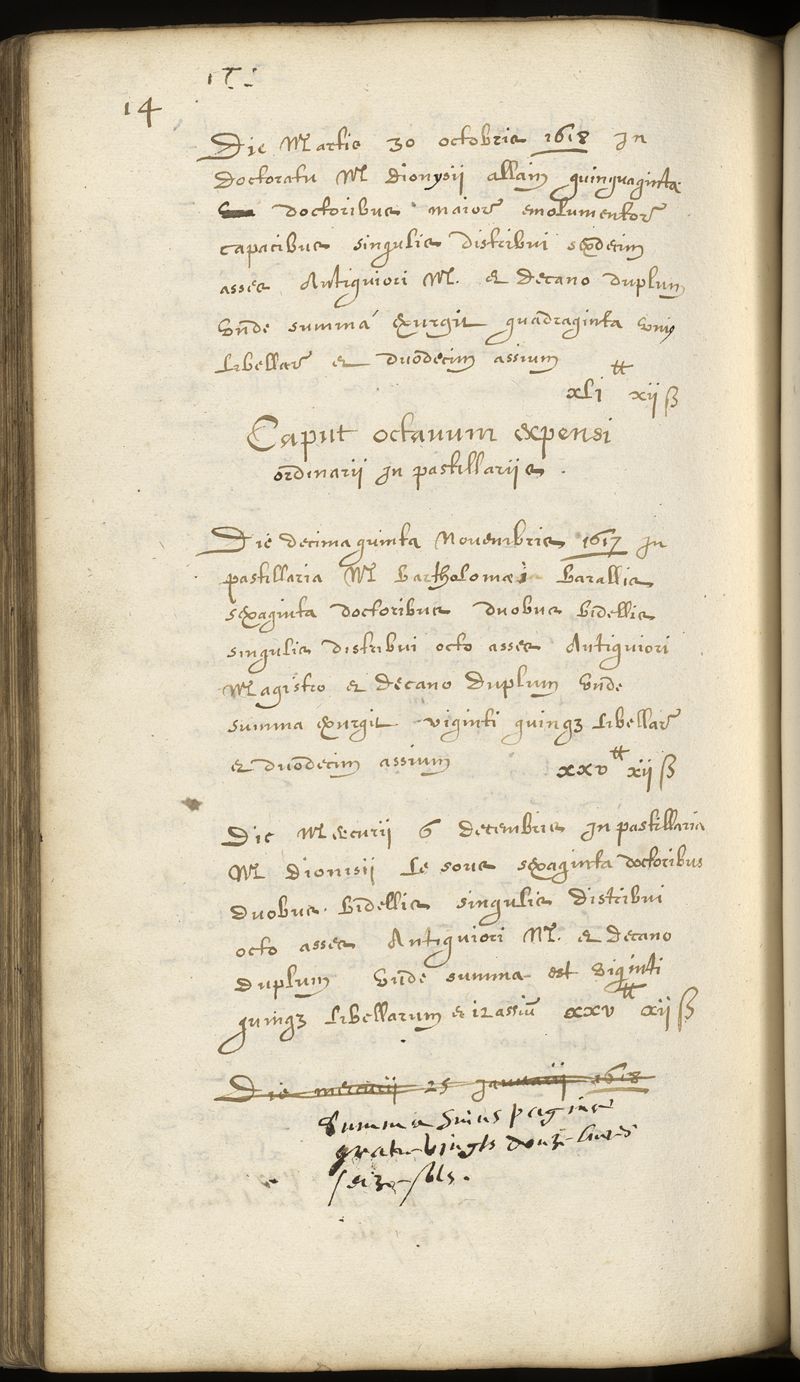 14
Die Martis 30 octobris 1618 In
doctoratu M. dionysii allain quinquaginta
doctoribus maior emolumentor
capacibus singulis distribui sexdecim
asses Antiquiori M. et decano duplum
vnde summa exurgit quadraginta vnis
libellar et duodecim assium
xli ₶ xii ß
Caput octauum expensi
ordinarii In pastillariis.
Die decima quinta Nouembris 1617 In
pastillaria M. Bartholomaei Barallis
sexaginta doctoribus duobus bidellis
singulis distribui octo asses Antiquiori
Magistro et decano duplum vnde
summa exurgit viginti quinqz libellar
et duodecim assium xxv ₶ xii ß
Die Mercurii 6 decembris In pastillaria
M. dionisii le soue sexaginta doctoribus
duobus bidellis singulis distribui
octo asses Antiquiori M. et decano
duplum vnde summa est viginti
quinqz libellarum et 12 assiū xxv ₶ xii ß
Die mercurii 25 Januarii 1618
Summa huius pagine
quatre vingts douze liures
seize sols.